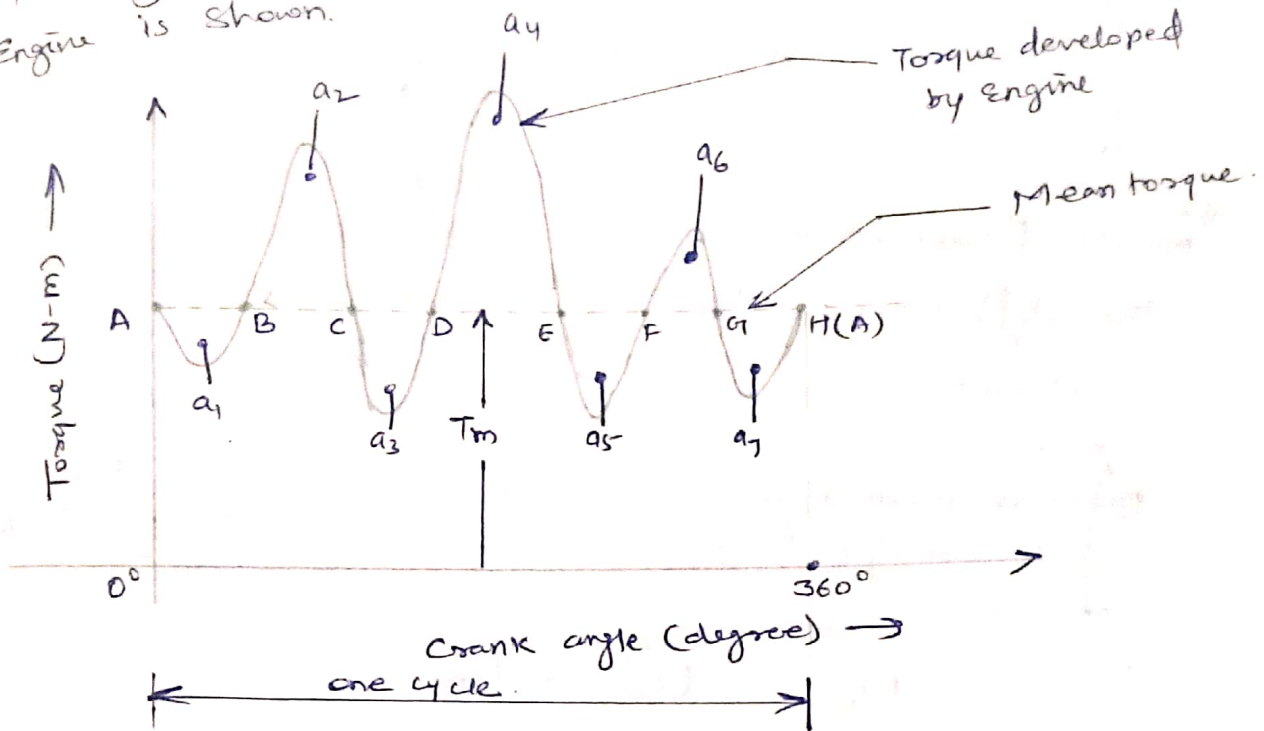 Engine is shown.
a4
Torque developed
by Engine
a2
a6
Mean torque.
Torque (N-m) →
A
B
C
D
E
F
G
H(A)
a1
a3
Tm
a5
a7
0°
360°
Crank angle (degree) →
one cycle.